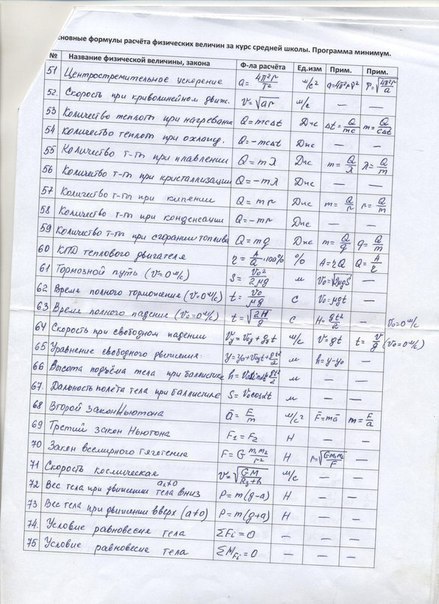 сновные формулы расчёта физических величин за курс средней школы. Программа минимум.
№ Название физической величины, закона Ф-ла расчёта Ед.изм Прим. Прим.
51 Центростремительное ускорение a=4π²r/T² м/с² a=4π²rν² T=√4π²r/a
52. Скорость при криволинейном движ. v=√ar м/с — —
53 Количество теплот при нагревани Q=mcΔt Дж Δt=Q/mc m=Q/cΔt
54 Количество теплот при охлажд. Q=-mcΔt Дж — —
55 Количество т-ты при плавлении Q=mλ Дж m=Q/λ λ=Q/m
56 Количество т-ты при кристаллизации Q=-mλ Дж — —
57 Количество т-ты при кипении Q=mr Дж m=Q/r r=Q/m
58 Количество т-ты при конденсации Q=-mr Дж — —
59 Количество т-ты при сгорании топлива Q=mq Дж m=Q/q q=Q/m
60 КПД теплового двигателя η=A/Q·100% % A=ηQ Q=A/η
61 Тормозной путь (v=0 м/с) S=v₀²/2μg м v₀=√2μgS —
62 Время полного торможения (v=0 м/с) t=v₀/μg с v₀=μgt —
63 Время полного падения (v₀=0 м/с) t=√2H/g с H=gt²/2 — v₀=0 м/с
64 Скорость при свободном падении v_y=v₀y+g_yt м/с v=gt t=v/g (v₀=0 м/с)
65 Уравнение свободного движения y=y₀+v₀yt+gt²/2 м h=y-y₀
66 Высота подъёма тела при баллистике м — —
67. Дальность полёта тела при баллистике S=v₀cosαt м — —
68 Второй закон Ньютона a=F/m м/с² F=ma m=F/a
69 Третий закон Ньютона F₁=F₂ Н — —
70 Закон всемирного тяготения F=G m₁m₂/r² Н r=√Gm₁m₂/F —
71 Скорость космическая v=√GM/R₃+h м/с — —
72 Вес тела при движении тела вниз a≠0 P=m(g-a) Н — —
73 Вес тела при движении вверх (a≠0) P=m(g+a) Н — —
74. Условие равновесия тела ΣFi=0 — — —
75 Условие равновесие тела ΣM_Fi=0 — — —